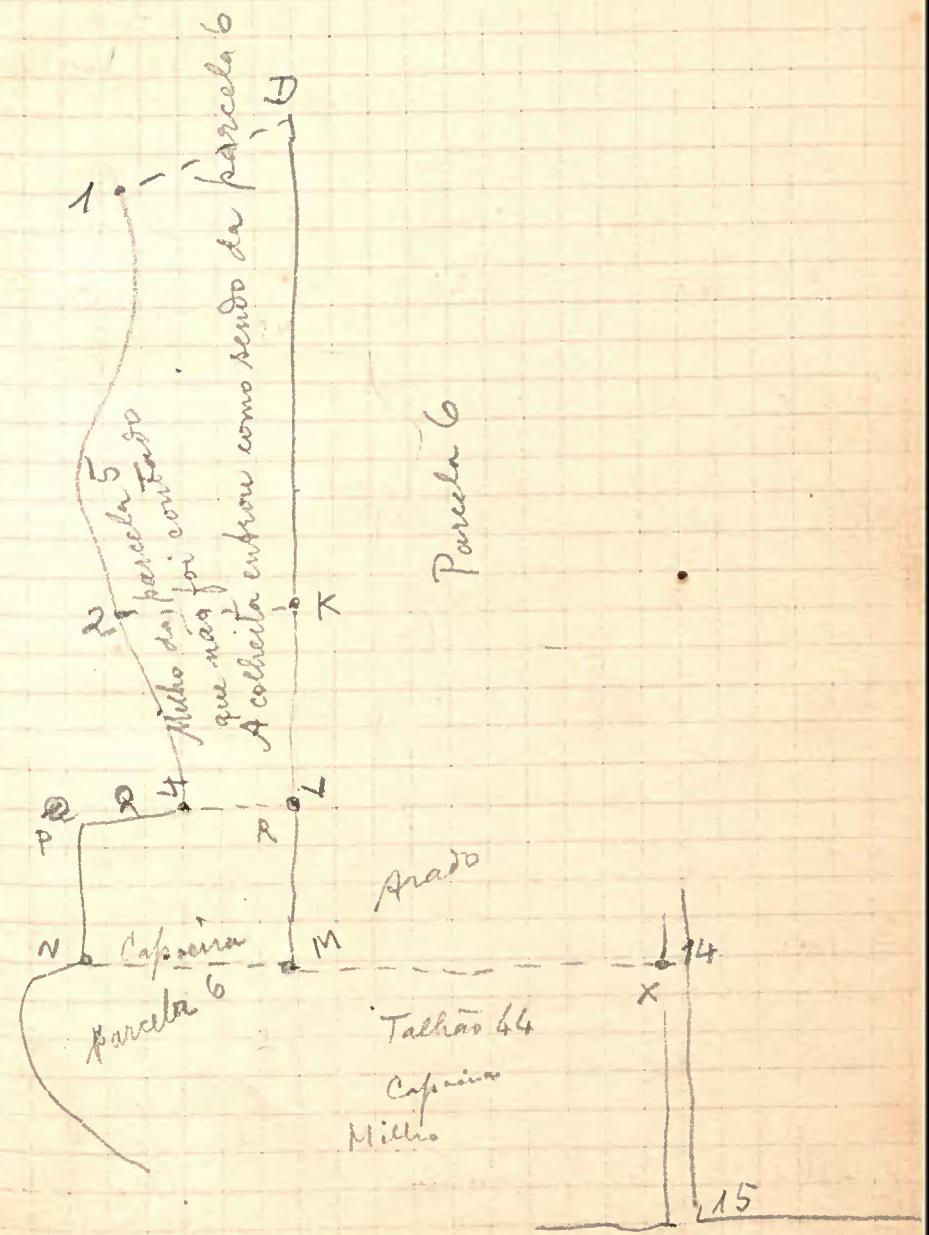 1
U
Milho da parcela 5
que não foi contado
A colheita entrou como sendo da parcela 6
Parcela 6
2
K
4
L
P
Q
P
N
M
Capoeira
parcela 6
Arado
X
14
Talhão 44
Capoeira
Milho
15